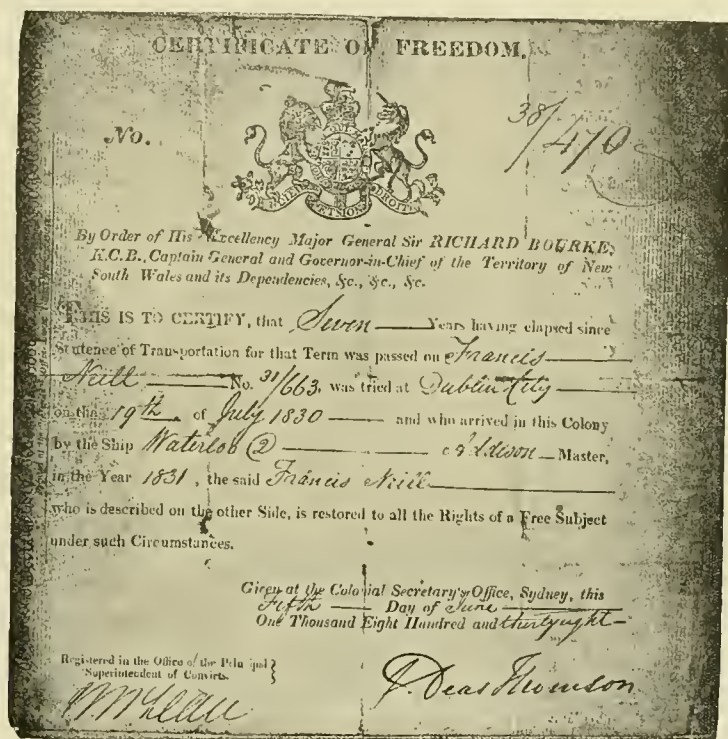 CERTIFICATE OF FREEDOM.
No.
38/470
DIEU ET MON DROIT
By Order of His Excellency Major General Sir RICHARD BOURKE,
K.C.B., Captain General and Governor-in-Chief of the Territory of New
South Wales and its Dependencies, &c., &c., &c.
THIS IS TO CERTIFY, that Seven Years having elapsed since
Sentence of Transportation for that Term was passed on Francis
Neill No. 31/663, was tried at Dublin City
on the 19th of July 1830 and who arrived in this Colony
by the Ship Waterloo (2) Addison Master,
in the Year 1831, the said Francis Neill
who is described on the other Side, is restored to all the Rights of a Free Subject
under such Circumstances.
Given at the Colonial Secretary's Office, Sydney, this
Fifth Day of June
One Thousand Eight Hundred and thirtyeight
Registered in the Office of the Principal
Superintendent of Convicts.
Deas Thomson